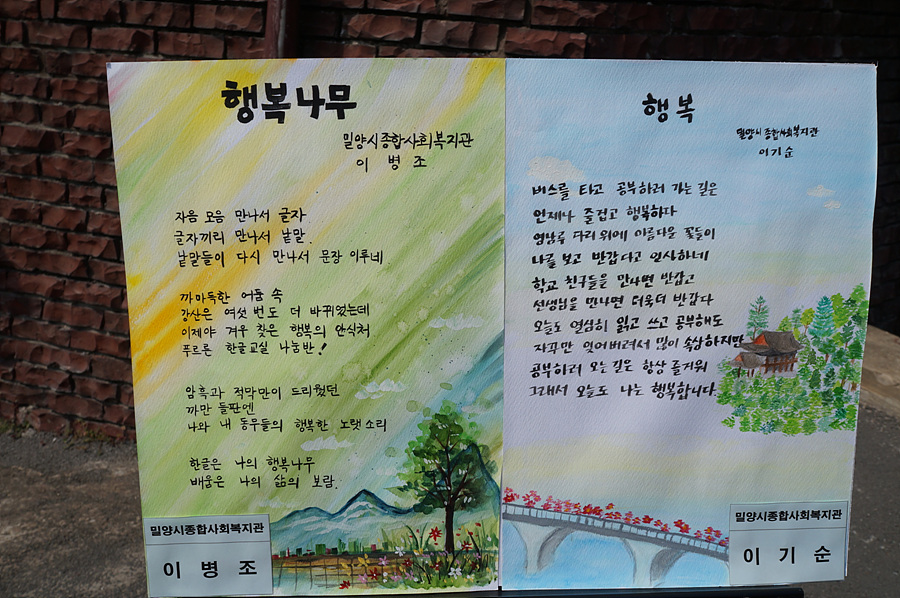 행복나무
밀양시종합사회복지관
이 병 조
자음 모음 만나서 글자
글자끼리 만나서 낱말.
낱말들이 다시 만나서 문장 이루네
까마득한 어둠 속
강산은 여섯 번도 더 바뀌었는데
이제야 겨우 찾은 행복의 안식처
푸르른 한글교실 나눔반!
암흑과 적막만이 드리웠던
까만 들판엔
나와 내 동무들의 행복한 노랫소리
한글은 나의 행복나무
배움은 나의 삶의 보람.
밀양시종합사회복지관
이 병 조
행복
밀양시종합사회복지관
이기순
버스를 타고 공부하러 가는 길은
언제나 즐겁고 행복하다
영남루 다리위에 아름다운 꽃들이
나를 보고 반갑다고 인사하네
학교 친구들을 만나면 반갑고
선생님을 만나면 더욱더 반갑다
오늘도 열심히 읽고 쓰고 공부해도
자꾸만 잊어버려서 많이 속상하지만
공부하러 오는 길은 항상 즐거워
그래서 오늘도 나는 행복합니다.
밀양시종합사회복지관
이 기 순